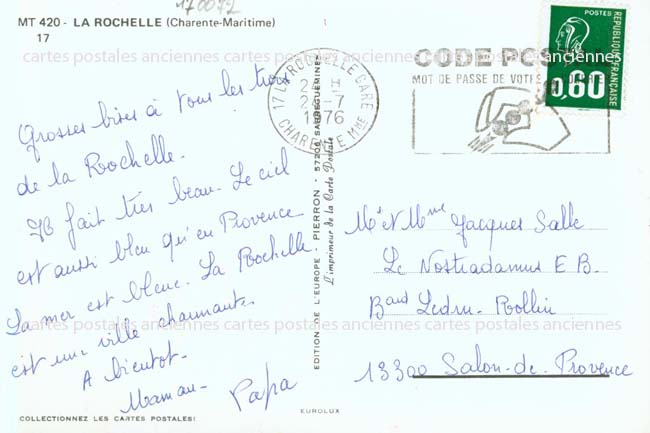 170072
MT 420 - LA ROCHELLE (Charente-Maritime)
17
cartes postales anciennes cartes postales anciennes cartes postales anciennes
Grosses bises à tous les trois
de la Rochelle.
Il fait très beau. Le ciel
est aussi bleu qu'en Provence
La mer est bleue. La Rochelle
est une ville charmante.
A bientot.
Maman - Papa
cartes postales anciennes cartes postales anciennes cartes postales anciennes
COLLECTIONNEZ LES CARTES POSTALES!
EDITION DE L'EUROPE - PIERRON - 57206 SARREGUEMINES
L'imprimeur de la Carte Postale
EUROLUX
17 LA ROCHELLE GARE
24-7
1976
CHARENTE MME
CODE POSTAL
MOT DE PASSE DE VOTRE
POSTES
REPUBLIQUE FRANÇAISE
0,60
Mr et Mme Jacques Salle
Le Nostradamus E B.
Bard Ledru-Rollin
13300 Salon-de-Provence